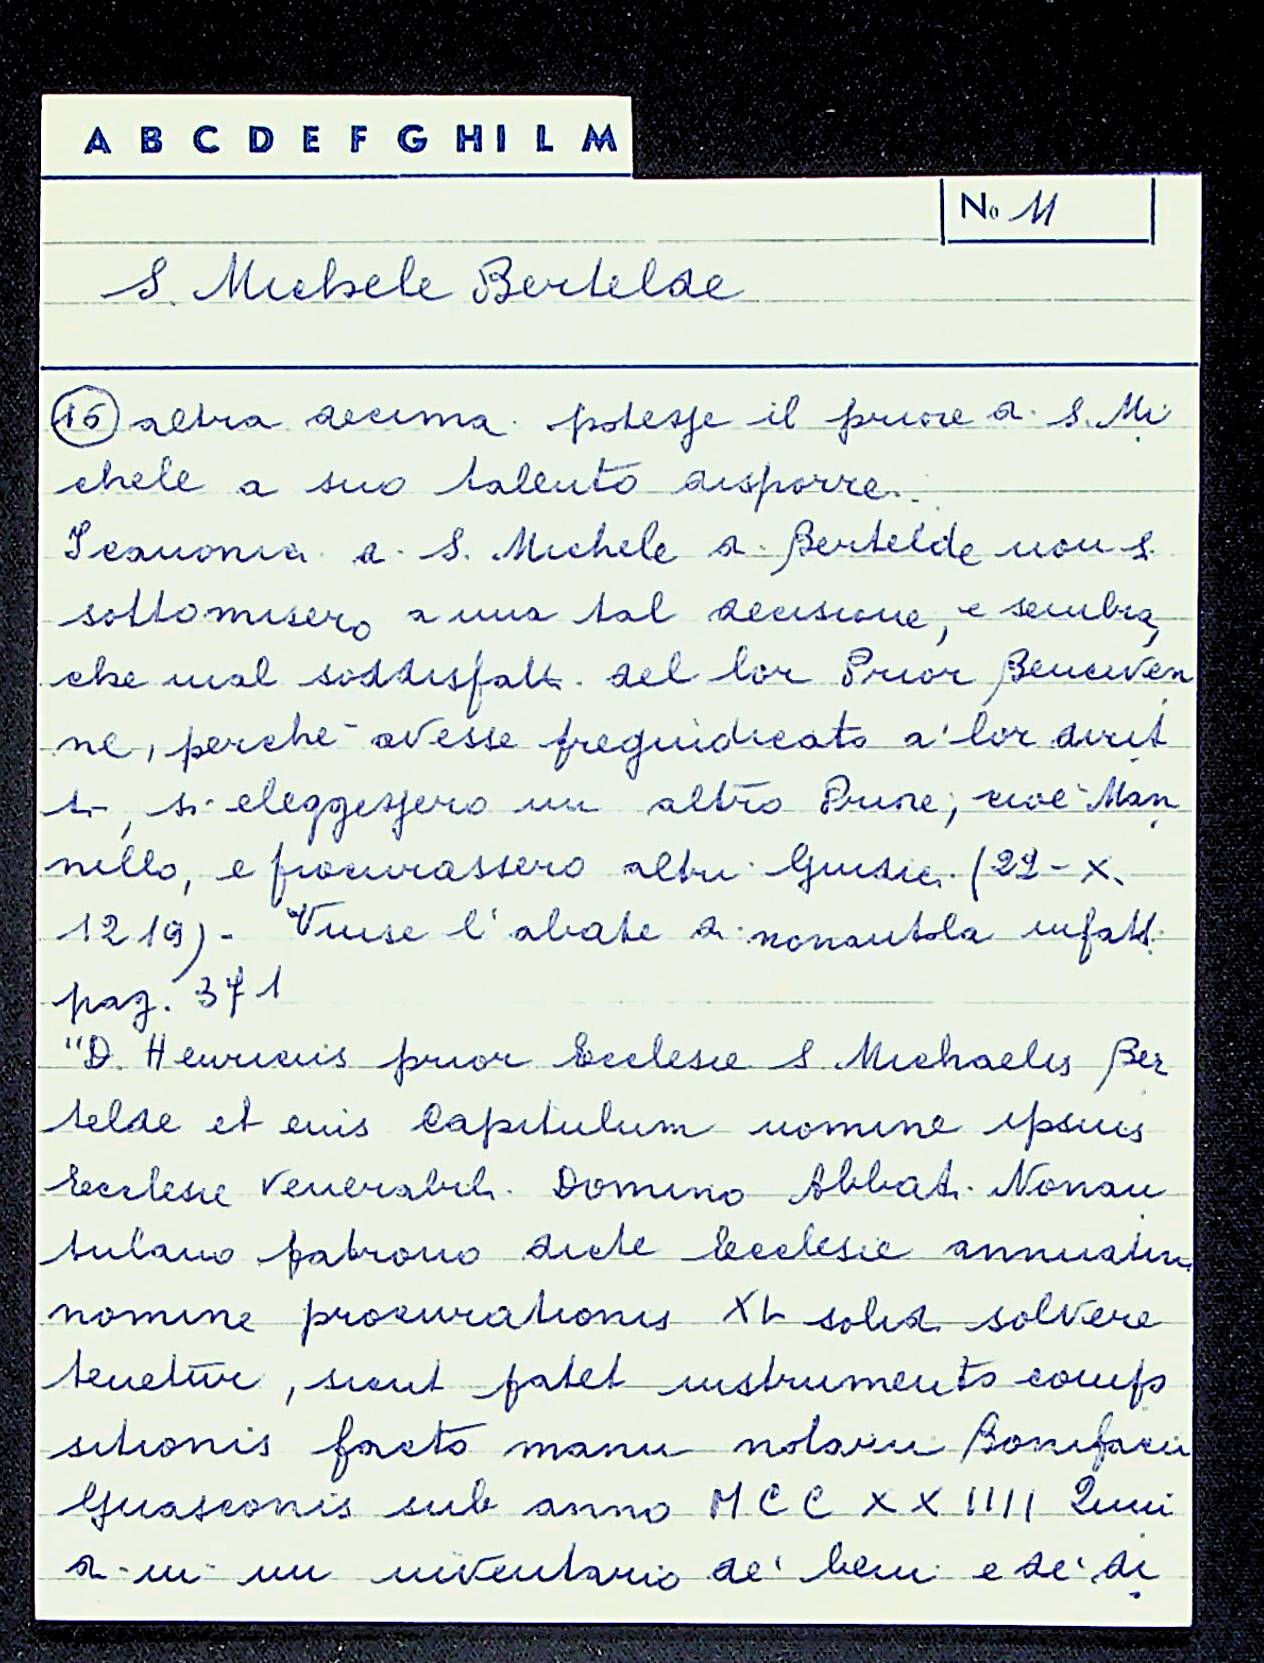 A B C D E F G H I L M
No 11
S. Michele Bertelde
16 altra decima potesse il priore di S. Mi
chele a suo talento disporre.
I canonici di S. Michele di Bertelde non si
sottomisero a una tal decisione, e sembra,
che mal soddisfatti del lor Prior Benciven
ne, perché avesse pregiudicato a' lor dirit
ti, si eleggessero un altro Priore, cioè Man
nello, e procurassero altri Giudici (29-X.
1219)- Vinse l'abate di nonantola infatti
pag. 371
"D. Henricus prior Ecclesie S. Michaelis Ber
telde et eius Capitulum nomine ipsius
Ecclesie Venerabili Domino Abbati Nonan
tulano patrono dicte Ecclesie annuatim
nomine procurationis XL solid. solvere
tenetur, sicut patet instrumento compo
sitionis facto manu notarii Bonifacii
Guasconis sub anno MCCXXIIII Quin
di in un inventario de' beni e de' di